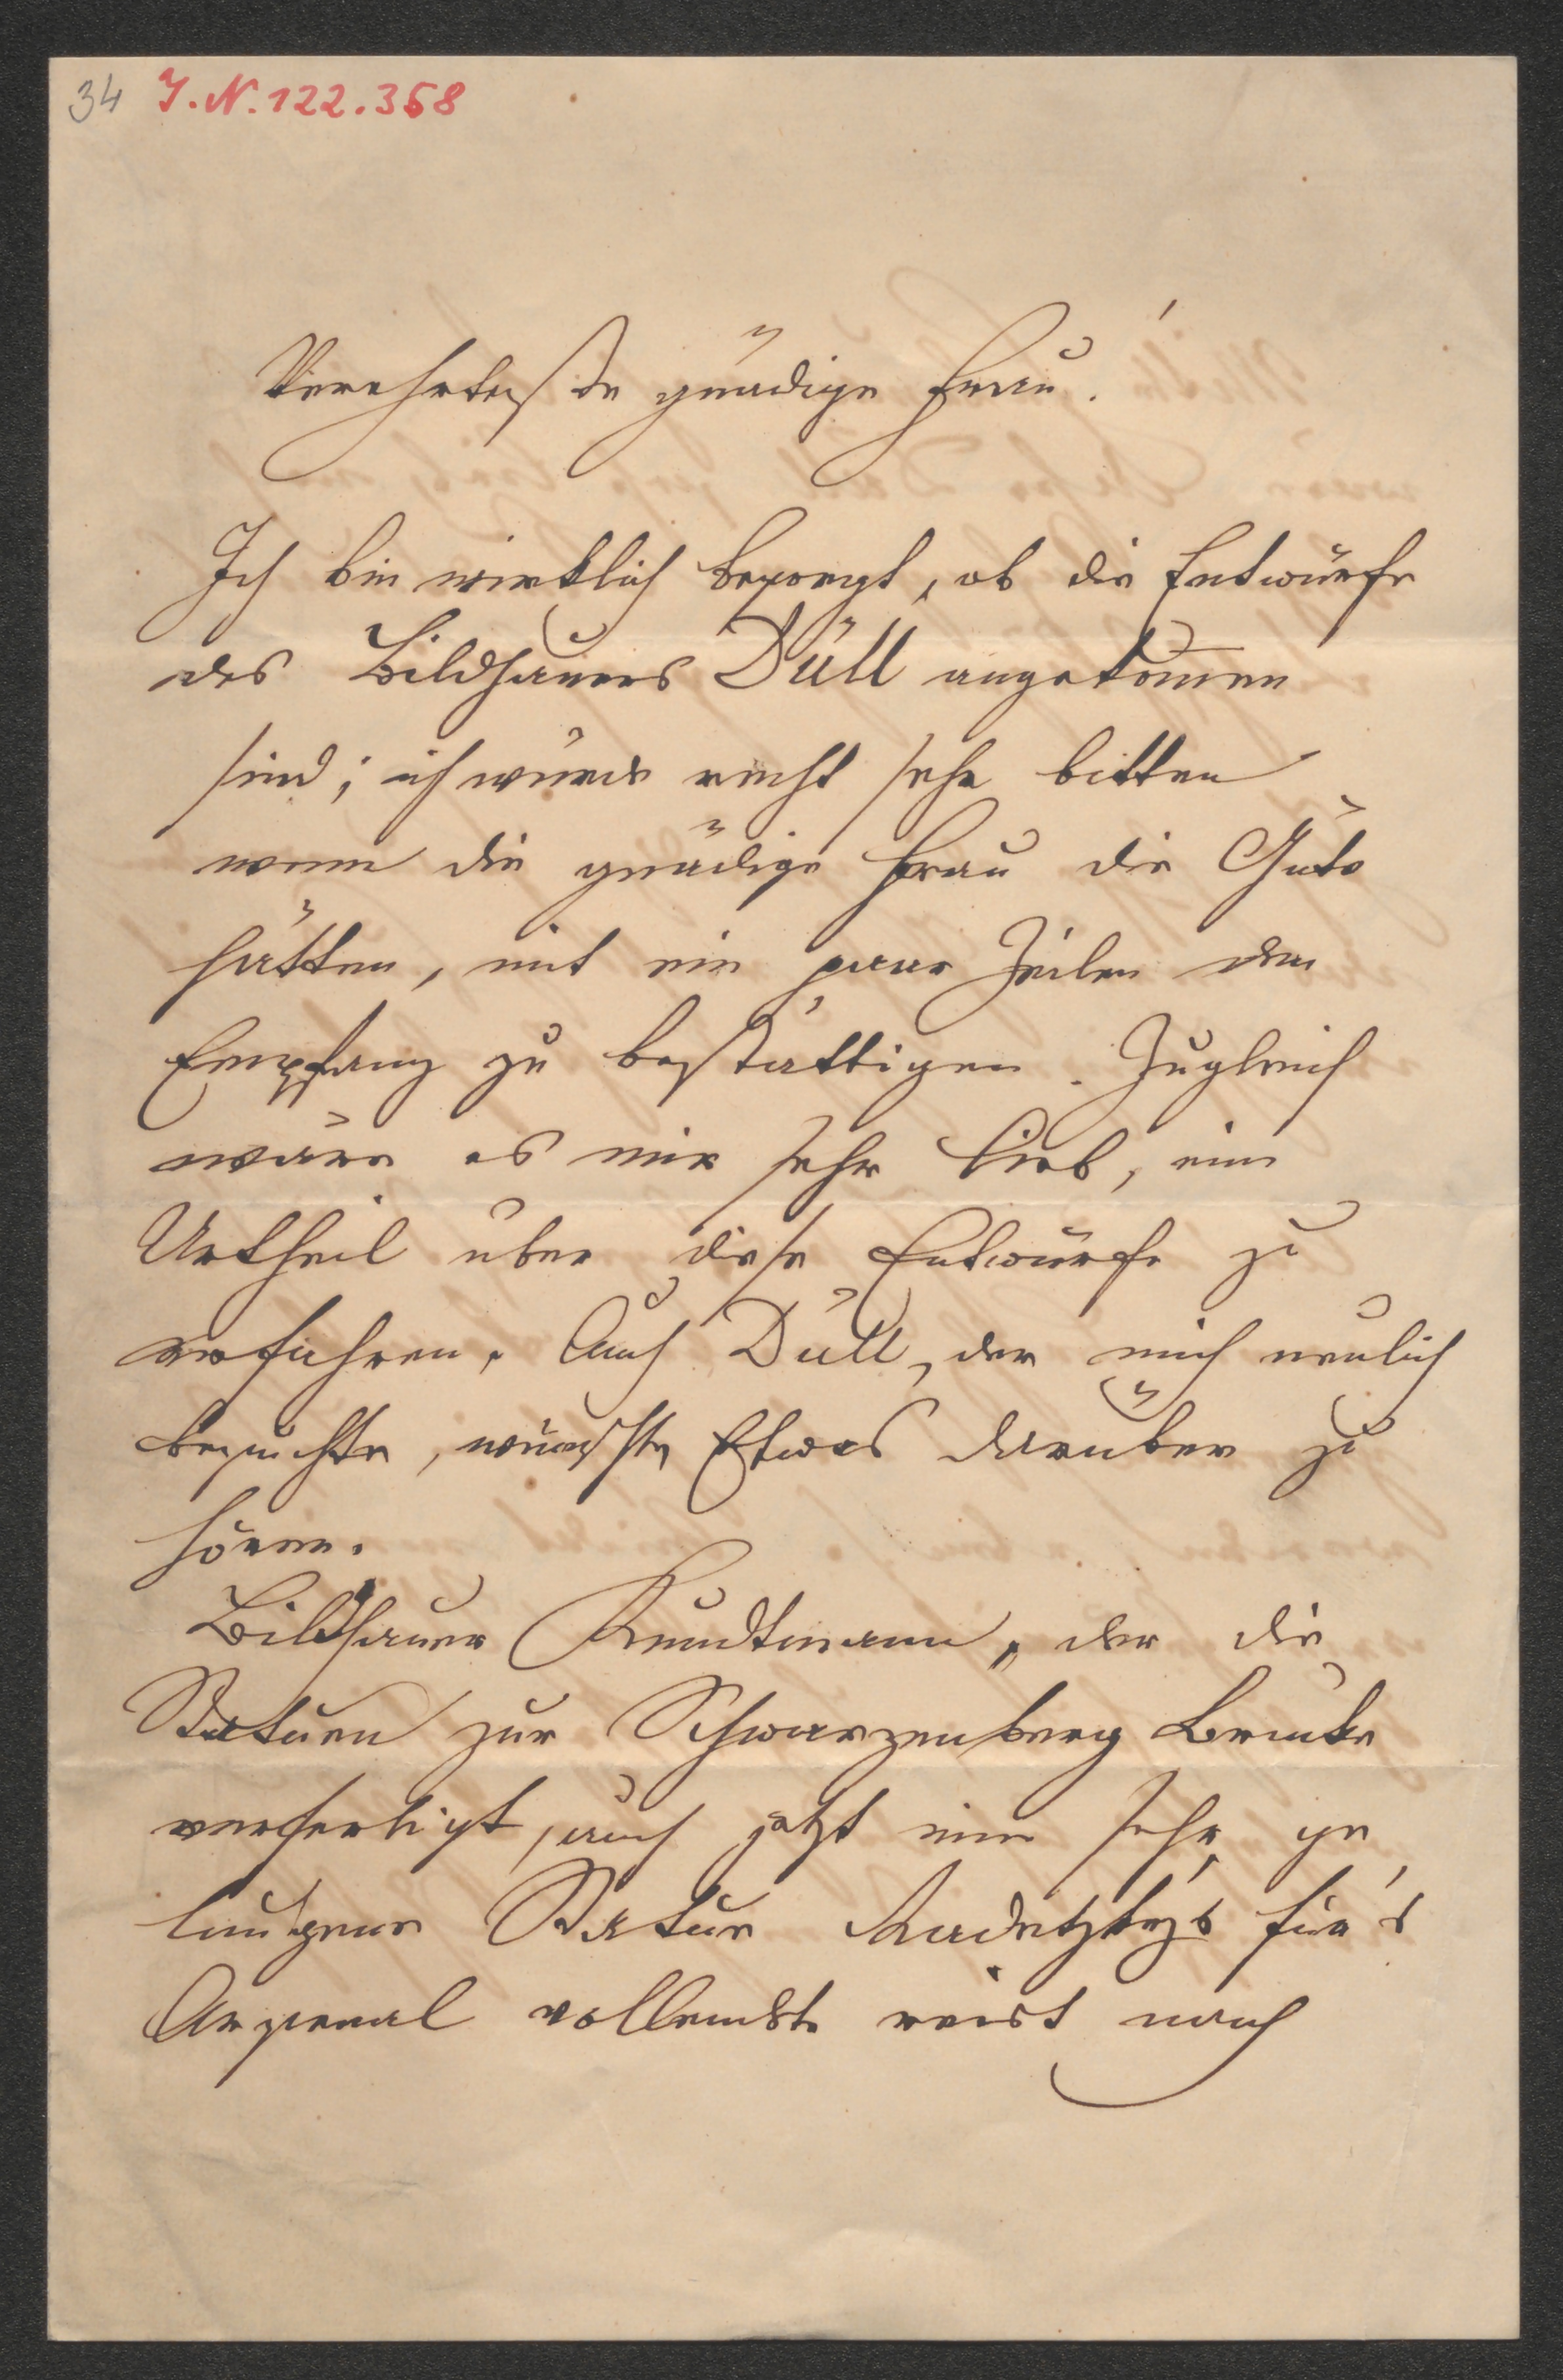 34 I.N. 122.358
Verehrteste gnädige Frau!
Ich bin wirklich besorgt, ob die Entwürfe
des Bildhauers Düll angekommen
sind; ich würde recht sehr bitten
wenn die gnädige Frau die Güte
hätten, mit ein paar Zeilen den
Empfang zu bestättigen. Zugleich
wäre es mir sehr lieb, ein
Urtheil über diese Entwürfe zu
erfahren. Auch Düll, der mich neulich
besuchte, wünschte Etwas darüber zu
hören.
Bildhauer Kundtmann, der die
Statuen zur Schwarzenberg Brücke
verfertigt, auch jetzt eine sehr ge
lungene Statue Radetzky's für's
Arsenal vollendet reist nach